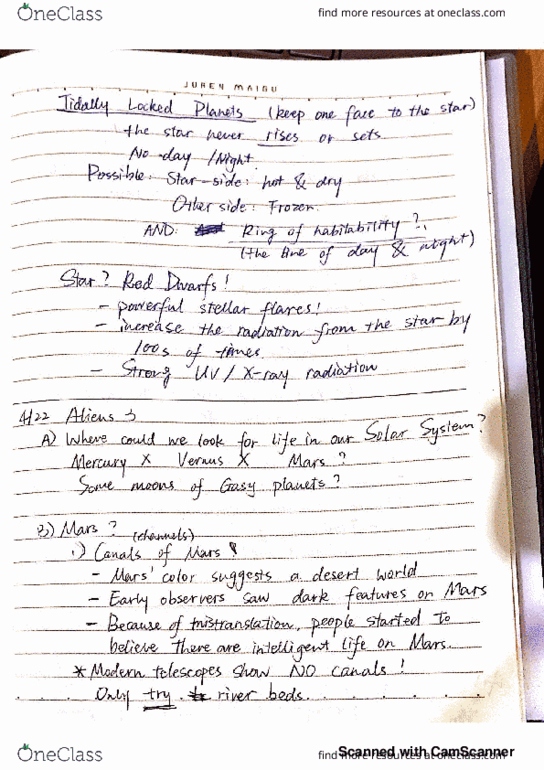 OneClass
find more resources at oneclass.com
Tidally Locked Planets (keep one face to the star)
the star never rises or sets
No day / Night.
Possible: Star-side: hot & dry
Other side: Frozen.
AND: Ring of habitability?
(the line of day & night)
Star? Red Dwarfs!
- powerful stellar flares!
- increase the radiation from the star by
100s of times.
- Strong UV / X-ray radiation
4/22 Aliens 3
A) Where could we look for life in our Solar System?
Mercury X Vernus X Mars?
Some moons of Gasy planets?
B) Mars?
(channels)
1) Canals of Mars
- Mars' color suggests a desert world
- Early observers saw dark features on Mars
- Because of mistranslation, people started to
believe there are intelligent life on Mars.
* Modern telescopes show NO canals!
Only try river beds.
OneClass
find more resources at oneclass.com
Scanned with CamScanner